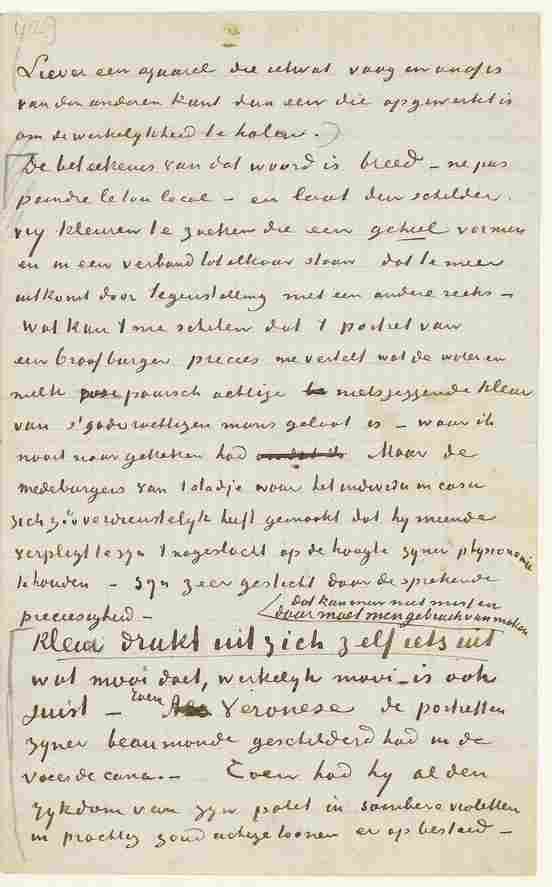 Liever een aquarel die ietwat vaag en onaf is
van den anderen kant dan een die opgewerkt is
om de werkelijkheid te halen.)
De beteekenis van dat woord is breed – ne pas
peindre le ton local – en laat den schilder
vrij kleuren te zoeken die een geheel vormen
en in een verband tot elkaar staan dat te meer
uitkomt door tegenstelling met een andere reeks –
Wat kan 't me schelen dat 't portret van
een braaf burger precies me vertelt wat de water en
melk paarsch achtige nietszeggende kleur
van s'godvruchtigen mans gelaat is – waar ik
nooit naar gekeken had Maar de
medeburgers van 't stadje waar het individu in casu
zich zóó verdienstelijk heeft gemaakt dat hij meende
verpligt te zijn 't nageslacht op de hoogte zijner physionomie
te houden – zijn zeer gesticht door de sprekende
preciesigheid –
dat kan men niet missen
daar moet men gebruik van maken
Kleur drukt uit zich zelf iets uit
wat mooi doet, werkelijk mooi – is ook
juist – Toen Veronese de portretten
zijner beau monde geschilderd had in de
noces de cana. – Toen had hij al den
rijkdom van zijn palet in sombere violetten
in prachtig goud achtige toonen er op besteed –